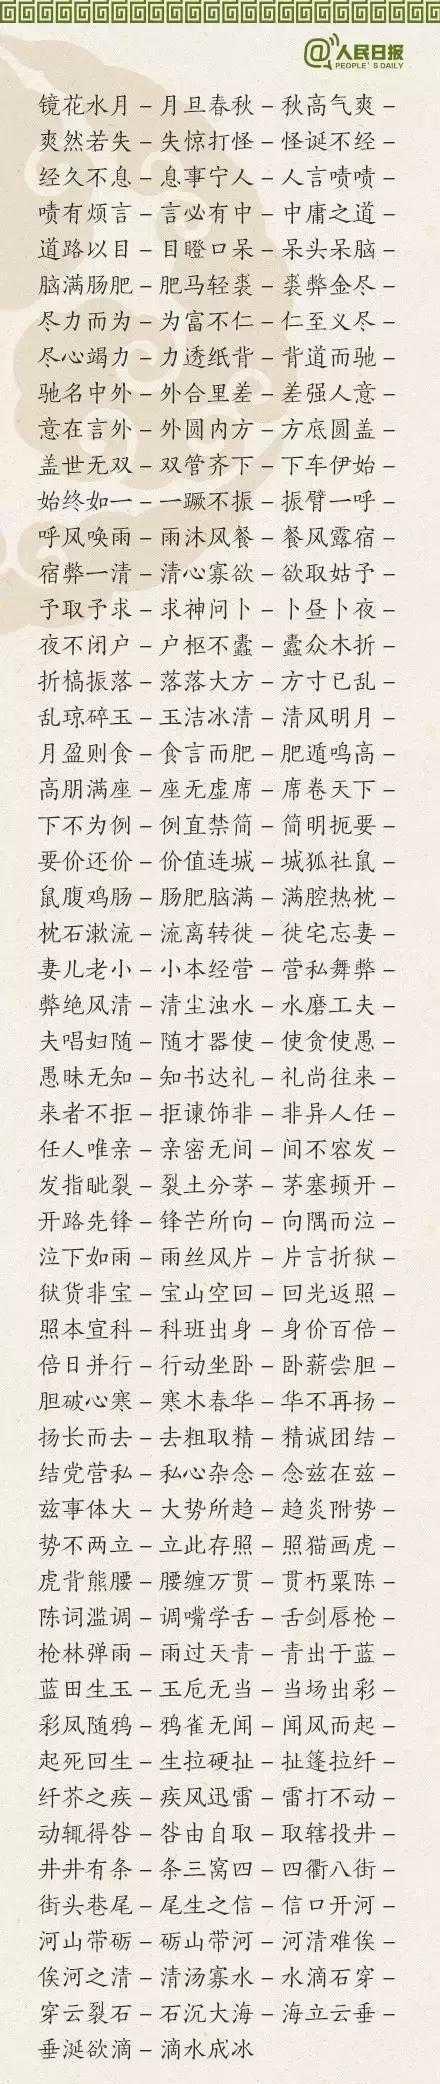 @人民日报
PEOPLE'S DAILY
镜花水月－月旦春秋－秋高气爽－
爽然若失－失惊打怪－怪诞不经－
经久不息－息事宁人－人言啧啧－
啧有烦言－言必有中－中庸之道－
道路以目－目瞪口呆－呆头呆脑－
脑满肠肥－肥马轻裘－裘弊金尽－
尽力而为－为富不仁－仁至义尽－
尽心竭力－力透纸背－背道而驰－
驰名中外－外合里差－差强人意－
意在言外－外圆内方－方底圆盖－
盖世无双－双管齐下－下车伊始－
始终如一－一蹶不振－振臂一呼－
呼风唤雨－雨沐风餐－餐风露宿－
宿弊一清－清心寡欲－欲取姑予－
予取予求－求神问卜－卜昼卜夜－
夜不闭户－户枢不蠹－蠹众木折－
折槁振落－落落大方－方寸已乱－
乱琼碎玉－玉洁冰清－清风明月－
月盈则食－食言而肥－肥遁鸣高－
高朋满座－座无虚席－席卷天下－
下不为例－例直禁简－简明扼要－
要价还价－价值连城－城狐社鼠－
鼠腹鸡肠－肠肥脑满－满腔热枕－
枕石漱流－流离转徙－徙宅忘妻－
妻儿老小－小本经营－营私舞弊－
弊绝风清－清尘浊水－水磨工夫－
夫唱妇随－随才器使－使贪使愚－
愚昧无知－知书达礼－礼尚往来－
来者不拒－拒谏饰非－非异人任－
任人唯亲－亲密无间－间不容发－
发指眦裂－裂土分茅－茅塞顿开－
开路先锋－锋芒所向－向隅而泣－
泣下如雨－雨丝风片－片言折狱－
狱货非宝－宝山空回－回光返照－
照本宣科－科班出身－身价百倍－
倍日并行－行动坐卧－卧薪尝胆－
胆破心寒－寒木春华－华不再扬－
扬长而去－去粗取精－精诚团结－
结党营私－私心杂念－念兹在兹－
兹事体大－大势所趋－趋炎附势－
势不两立－立此存照－照猫画虎－
虎背熊腰－腰缠万贯－贯朽粟陈－
陈词滥调－调嘴学舌－舌剑唇枪－
枪林弹雨－雨过天青－青出于蓝－
蓝田生玉－玉卮无当－当场出彩－
彩凤随鸦－鸦雀无闻－闻风而起－
起死回生－生拉硬扯－扯篷拉纤－
纤芥之疾－疾风迅雷－雷打不动－
动辄得咎－咎由自取－取辖投井－
井井有条－条三窝四－四衢八街－
街头巷尾－尾生之信－信口开河－
河山带砺－砺山带河－河清难俟－
俟河之清－清汤寡水－水滴石穿－
穿云裂石－石沉大海－海立云垂－
垂涎欲滴－滴水成冰